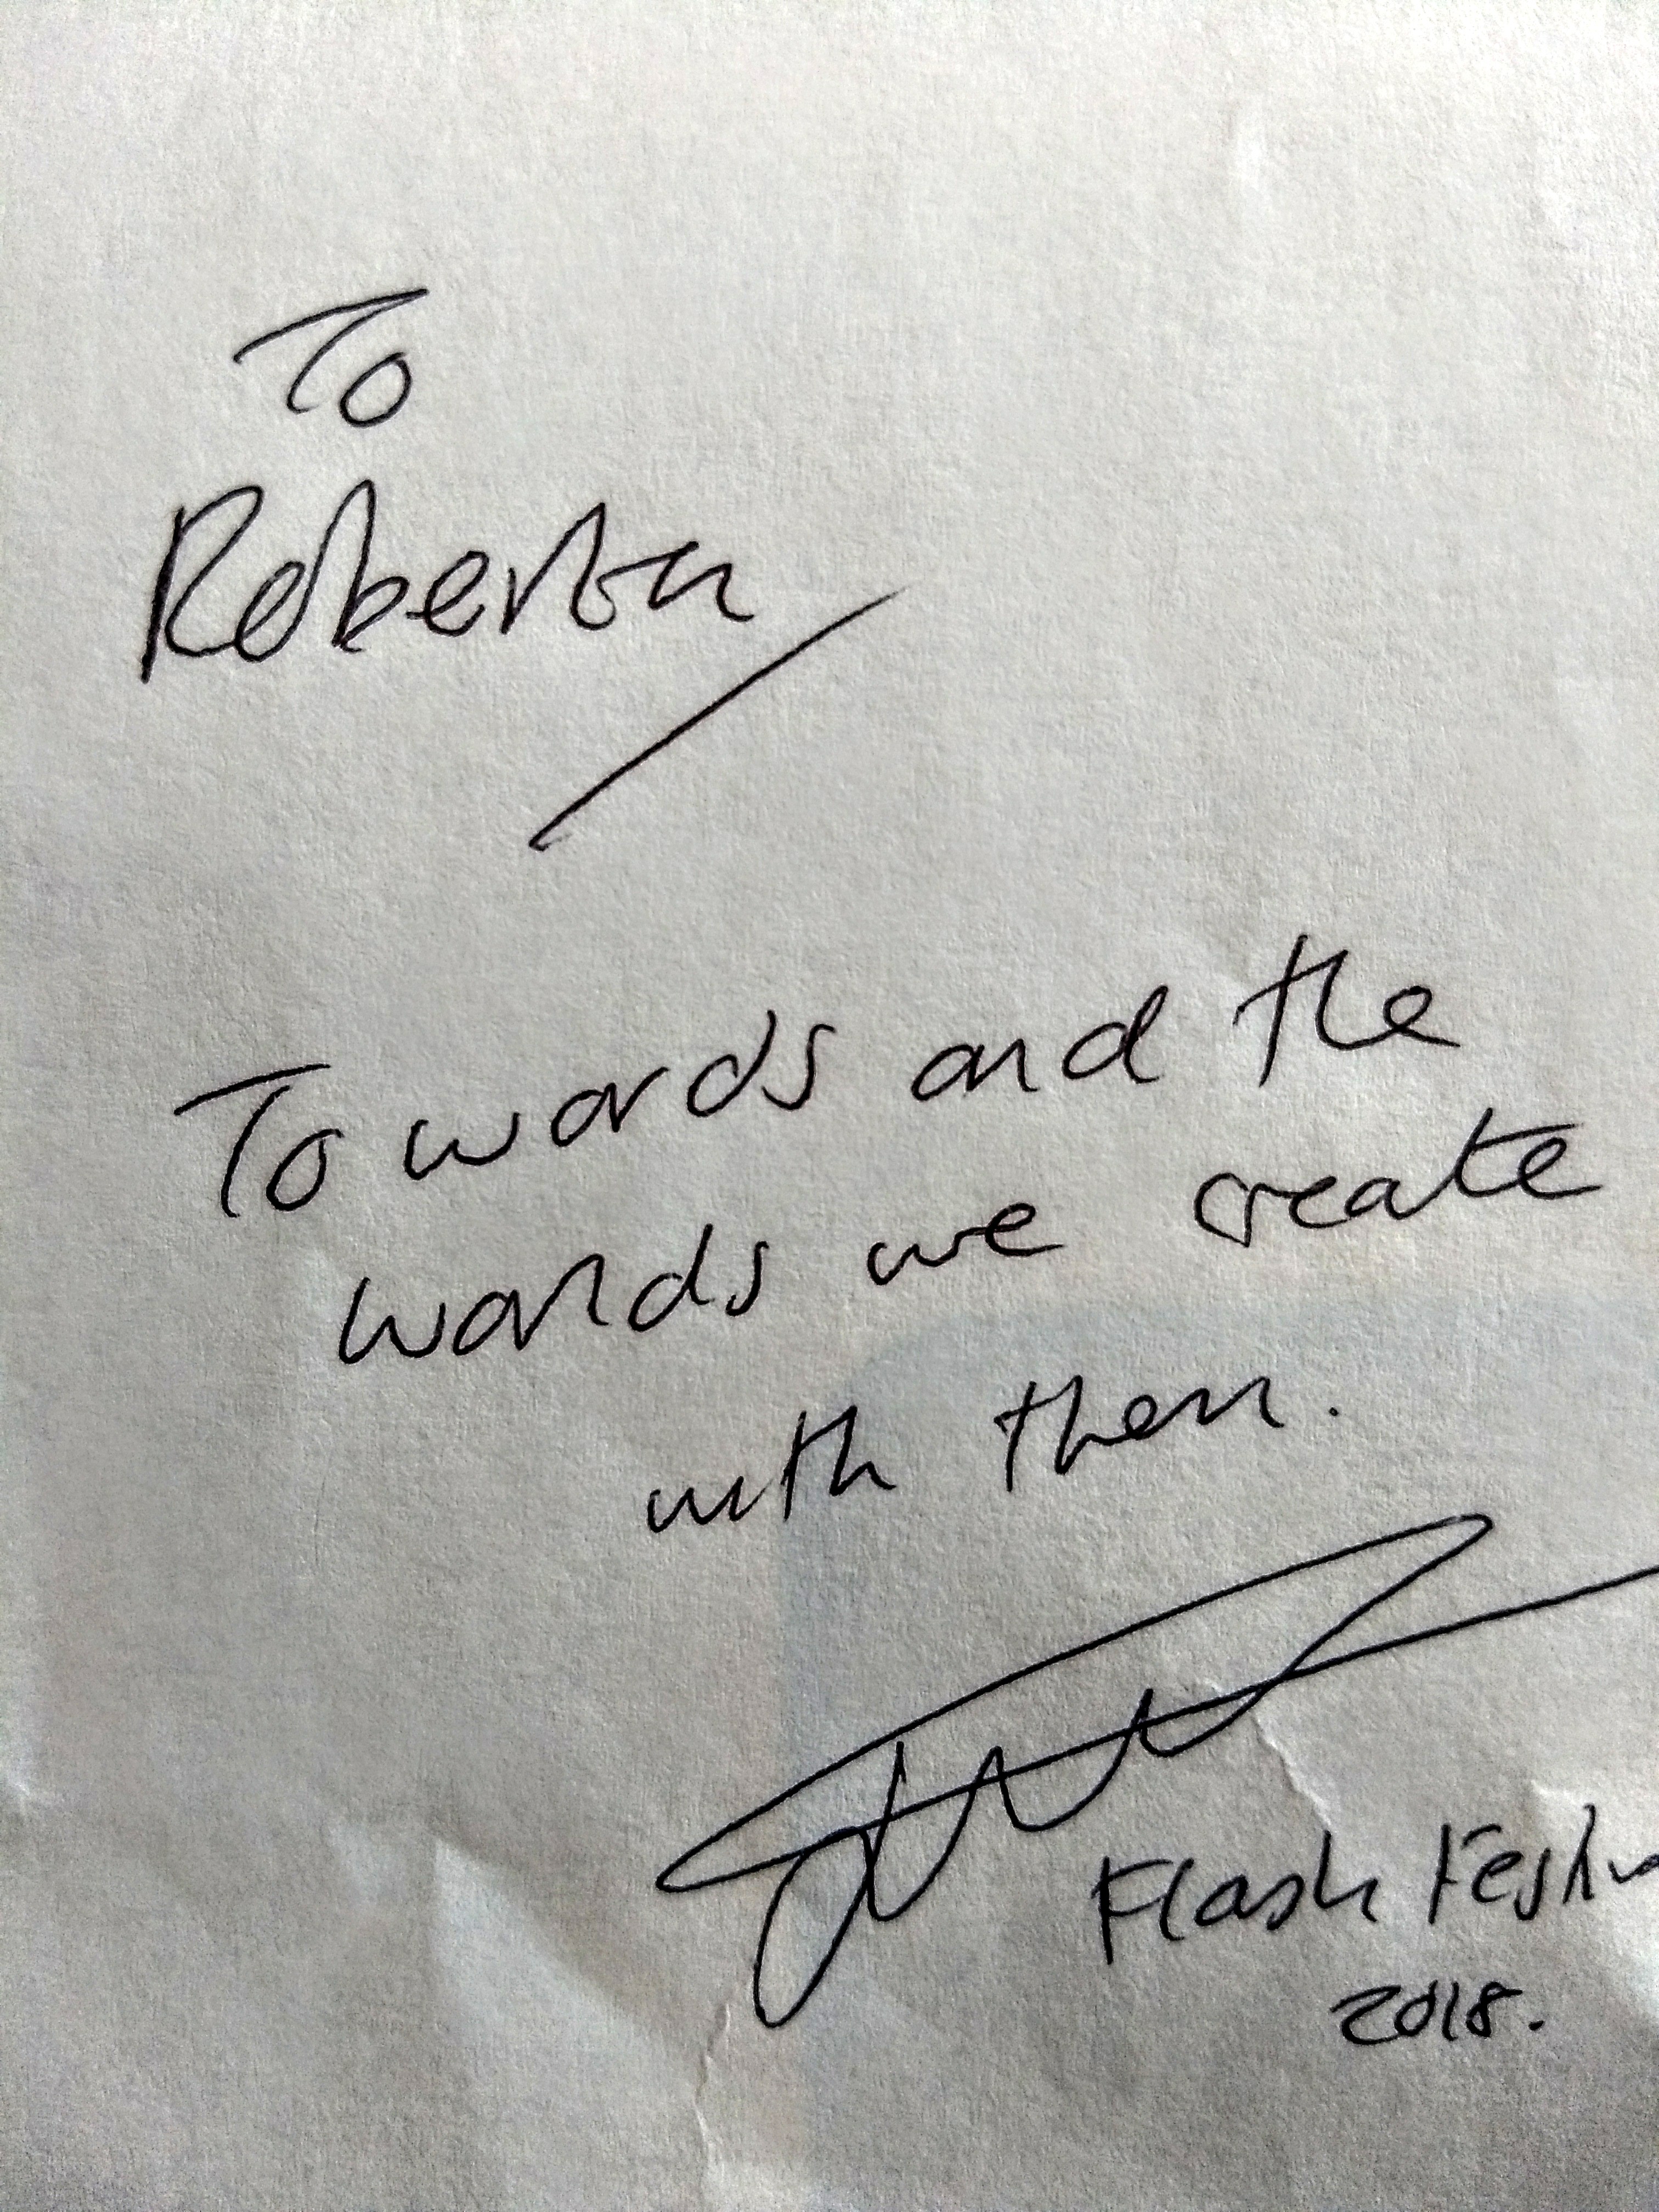 To
Roberta
To words and the
worlds we create
with them.
Flash Festiv
2018.